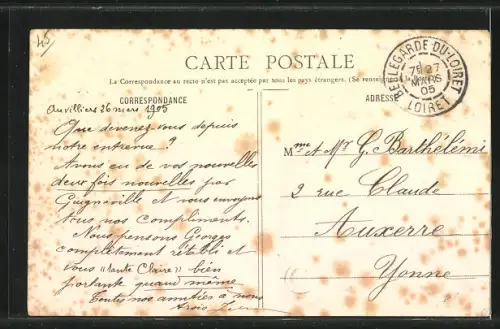 45
CARTE POSTALE
La Correspondance au recto n'est pas acceptée par tous les pays étrangers. (Se renseigner à la Poste)
CORRESPONDANCE
ADRESSE
BELLEGARDE-DU-LOIRET
7E 27
MARS
05
LOIRET
Auvilliers 26 mars 1905
Que devenez-vous depuis
notre entrevue ?
Avons eu de vos nouvelles
deux fois nouvelles par
Guigneville et nous envoyons
tous nos compliments.
Nous pensons Georges
complètement rétabli et
vous "Sante Claire" bien
portante quand même
Toutes nos amitiés à nous
Mme et Mr G. Barthélémi
2 rue Claude
Auxerre
Yonne